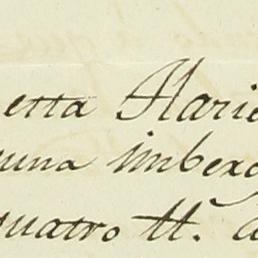 etta Marie
una imberg
quatro tt. d